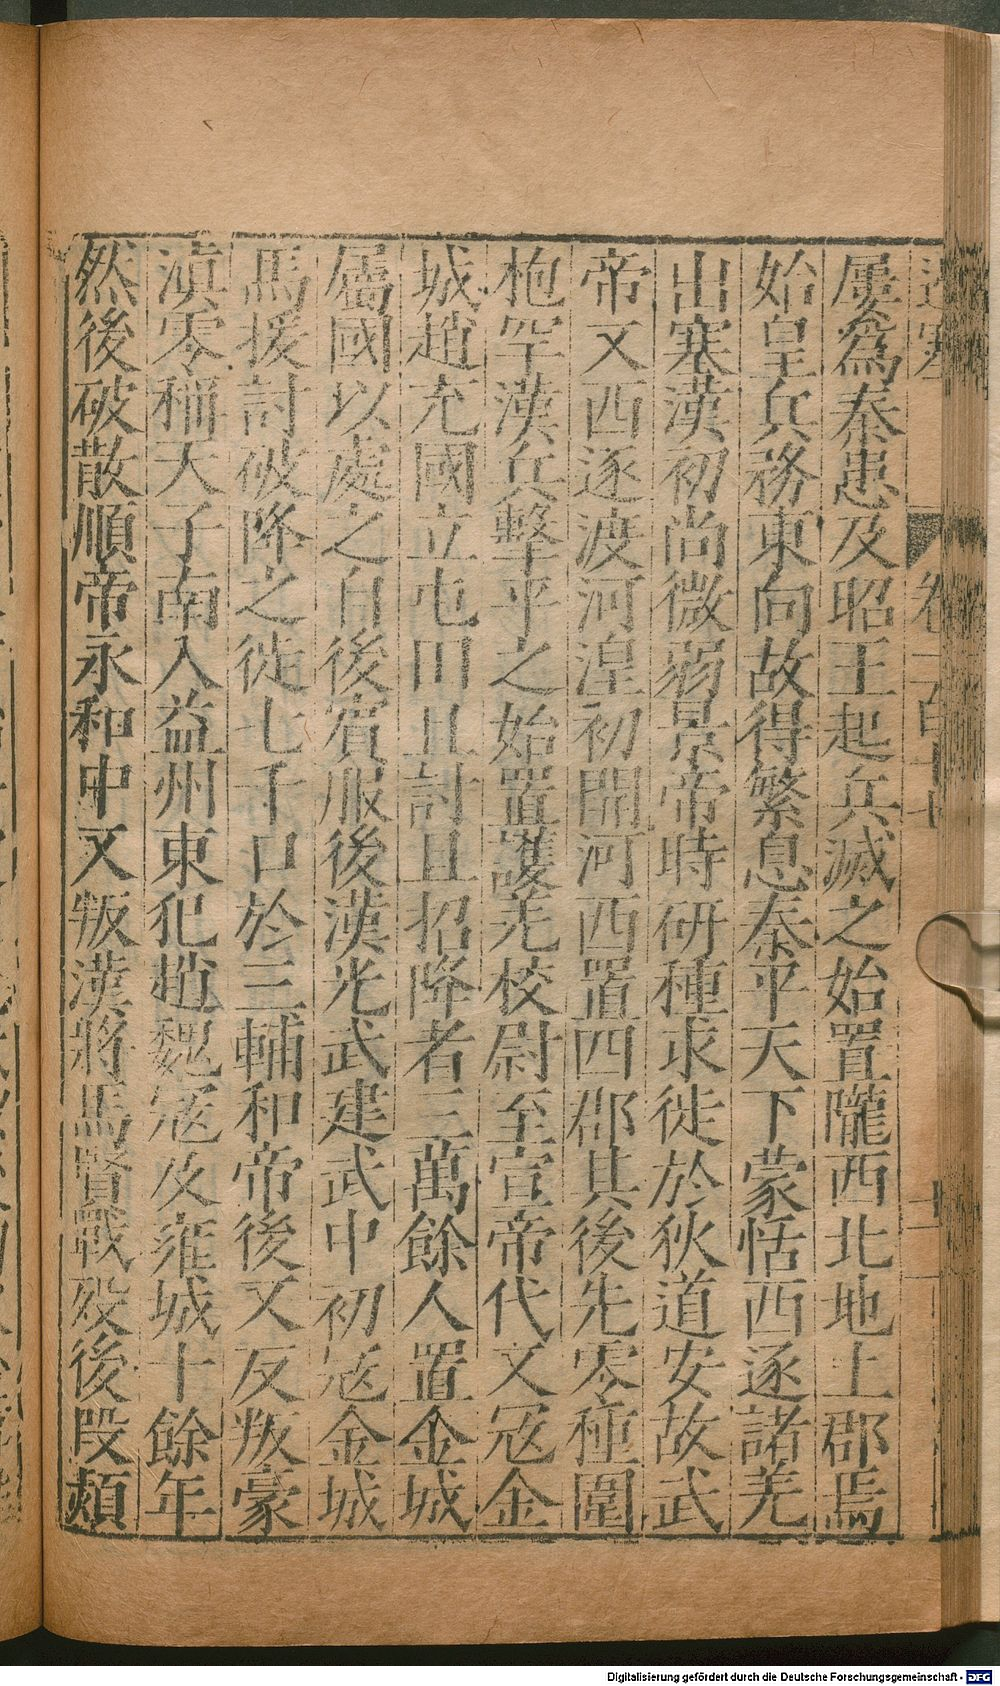 屢爲秦患及昭王起兵滅之始置隴西北地上郡焉
始皇兵務東向故得繁息秦平天下蒙恬西逐諸羌
出塞漢初尚微弱景帝時研種求徙於狄道安故武
帝又西逐渡河湟初開河西置四郡其後先零種圍
枹罕漢兵擊平之始置護羌校尉至宣帝代又寇金
城趙充國立屯田且討且招降者三萬餘人置金城
屬國以處之自後賓服後漢光武建武中初寇金城
馬援討破降之徙七千口於三輔和帝後又反叛豪
滇零稱天子南入益州東犯趙魏寇及雍城十餘年
然後破散順帝永和中又叛漢將馬賢戰歿後段熲
Digitalisierung gefördert durch die Deutsche Forschungsgemeinschaft - DFG